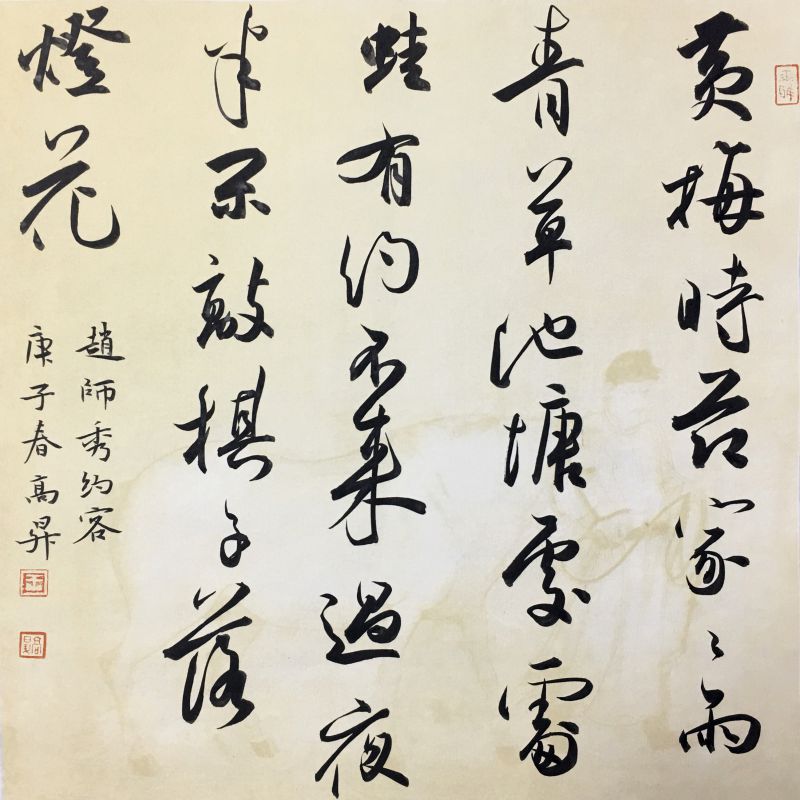 黃梅時節家〻雨
青草池塘處處
蛙有約不來過夜
半閑敲棋子落
燈花
趙師秀約客
庚子春高昇